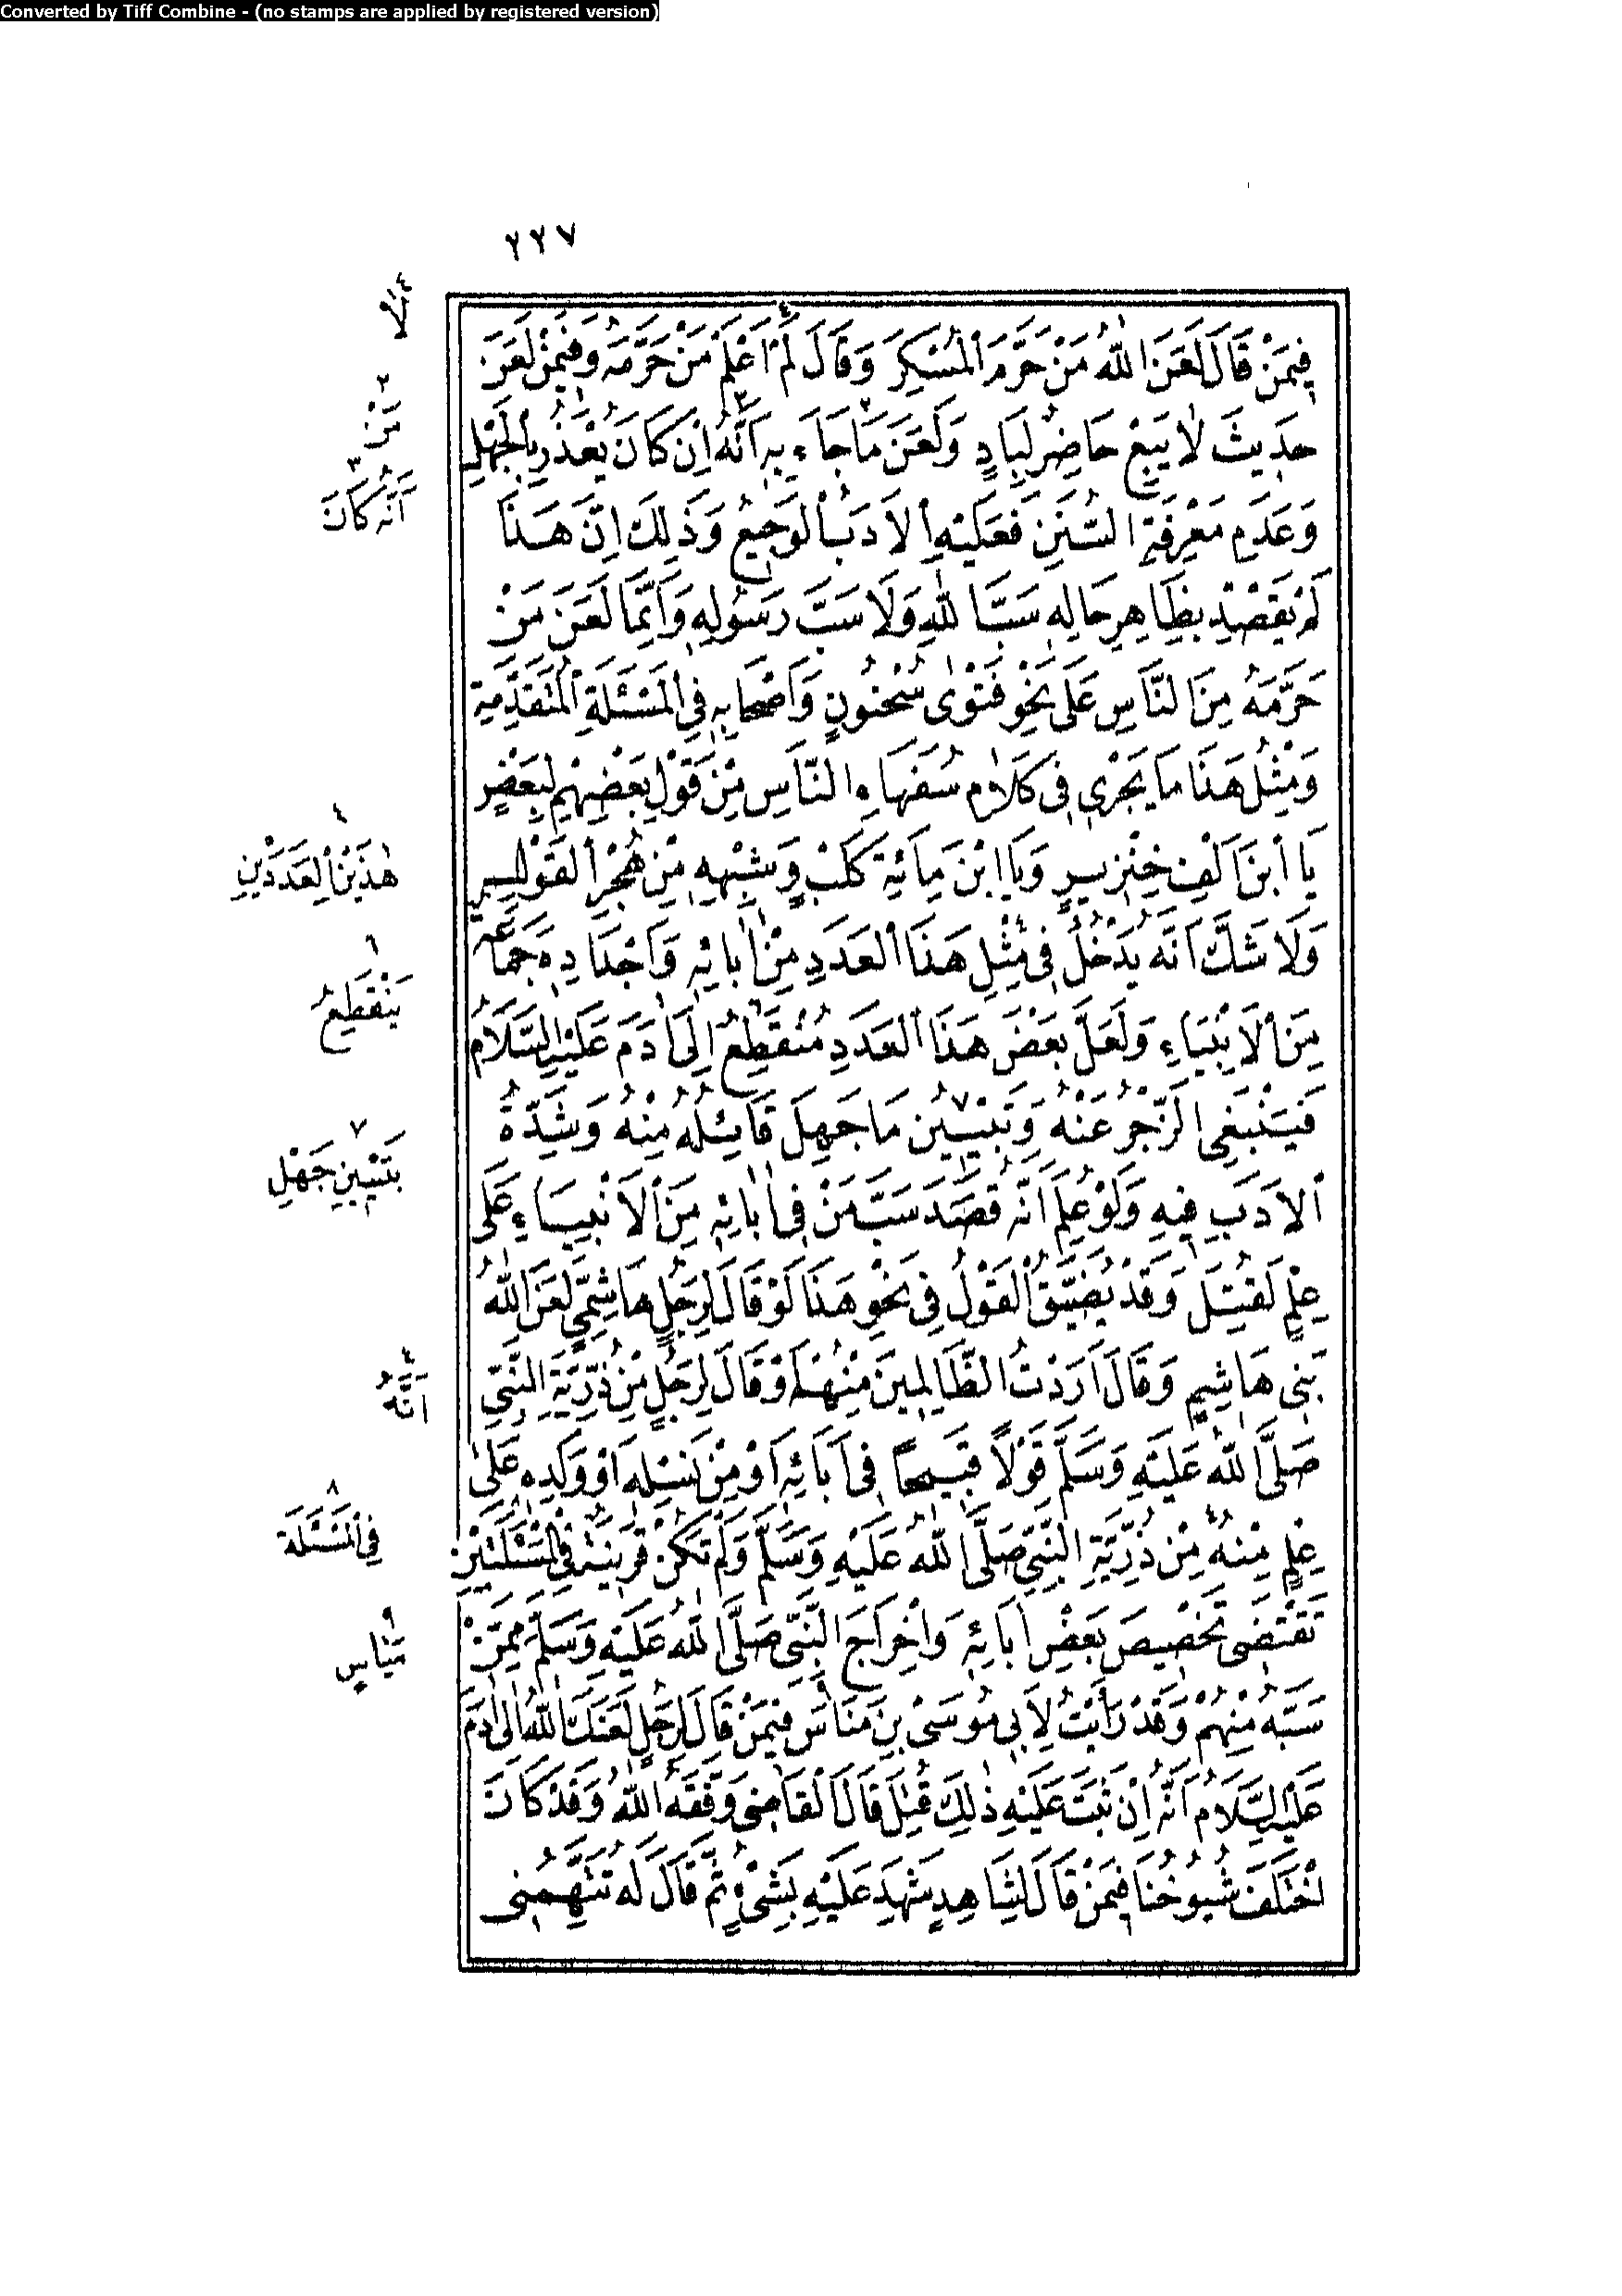 Converted by Tiff Combine - (no stamps are applied by registered version)
٢٢٧
فِيمَنْ قَالَ لَعَنَ اللّٰهُ مَنْ حَرَّمَ الْمُسْكِرَ وَقَالَ لَمْ اَعْلَمْ مَنْ حَرَّمَهُ وَفِيمَنْ لَعَنَ
حَدِيثَ لَا يَبِعْ حَاضِرٌ لِبَادٍ وَلَعَنَ مَا جَاءَ بِهِ اَنَّهُ اِنْ كَانَ يُعْذَرُ بِالْجَهْلِ
وَعَدَمِ مَعْرِفَةِ السُّنَنِ فَعَلَيْهِ الْاَدَبُ الْوَجِيعُ وَذٰلِكَ اِنَّ هَذَا
لَمْ يَقْصِدْ بِظَاهِرِ حَالِهِ سَبَّ اللّٰهِ وَلَا سَبَّ رَسُولِهِ وَاِنَّمَا لَعَنَ مَنْ
حَرَّمَهُ مِنَ النَّاسِ عَلَى نَحْوِ فَتْوٰى سُحْنُونٍ وَاَصْحَابِهِ فِي الْمَسْئَلَةِ الْمُتَقَدِّمَةِ
وَمِثْلُ هَذَا مَا يَجْرِي فِي كَلَامِ سُفَهَاءِ النَّاسِ مِنْ قَوْلِ بَعْضِهِمْ لِبَعْضٍ
يَا ابْنَ اَلْفِ خِنْزِيرٍ وَيَا ابْنَ مِائَةِ كَلْبٍ وَشِبْهِهِ مِنْ هُجْرِ الْقَوْلِ
وَلَا شَكَّ اَنَّهُ يَدْخُلُ فِي مِثْلِ هَذَا الْعَدَدِ مِنْ اٰبَائِهِ وَاَجْدَادِهِ جَمَاعَةٌ
مِنَ الْاَنْبِيَاءِ وَلَعَلَّ بَعْضَ هَذَا الْعَدَدِ مُنْقَطِعٌ اِلَى اٰدَمَ عَلَيْهِ السَّلَامُ
فَيَنْبَغِي الزَّجْرُ عَنْهُ وَتَبْيِينُ مَا جَهِلَ قَائِلُهُ مِنْهُ وَشِدَّةُ
الْاَدَبِ فِيهِ وَلَوْ عُلِمَ اَنَّهُ قَصَدَ سَبَّ مَنْ فِي اٰبَائِهِ مِنَ الْاَنْبِيَاءِ عَلَى
عِلْمٍ لَقُتِلَ وَقَدْ يُضَيَّقُ الْقَوْلُ فِي نَحْوِ هَذَا لَوْ قَالَ لِرَجُلٍ هَاشِمِيٍّ لَعَنَ اللّٰهُ
بَنِي هَاشِمٍ وَقَالَ اَرَدْتُ الظَّالِمِينَ مِنْهُمْ اَوْ قَالَ لِرَجُلٍ مِنْ ذُرِّيَّةِ النَّبِيِّ
صَلَّى اللّٰهُ عَلَيْهِ وَسَلَّمَ قَوْلًا قَبِيحًا فِي اٰبَائِهِ اَوْ مِنْ نَسْلِهِ اَوْ وَلَدِهِ عَلَى
عِلْمٍ مِنْهُ مِنْ ذُرِّيَّةِ النَّبِيِّ صَلَّى اللّٰهُ عَلَيْهِ وَسَلَّمَ وَلَمْ تَكُنْ قَرِينَةٌ فِي الْمَسْئَلَتَيْنِ
تَقْتَضِي تَخْصِيصَ بَعْضِ اٰبَائِهِ وَاِخْرَاجَ النَّبِيِّ صَلَّى اللّٰهُ عَلَيْهِ وَسَلَّمَ مِمَّنْ
سَبَّهُ مِنْهُمْ وَقَدْ رَاَيْتُ لِاَبِي مُوسَى بْنِ مَنَاسَ فِيمَنْ قَالَ لِرَجُلٍ لَعَنَكَ اللّٰهُ اِلٰى اٰدَمَ
عَلَيْهِ السَّلَامُ اَنَّهُ اِنْ ثَبَتَ عَلَيْهِ ذٰلِكَ قُتِلَ قَالَ الْقَاضِي وَفَّقَهُ اللّٰهُ وَقَدْ كَانَ
اخْتَلَفَ شُيُوخُنَا فِيمَنْ قَالَ لِشَاهِدٍ شَهِدَ عَلَيْهِ بِشَيْءٍ ثُمَّ قَالَ لَهُ تَتَّهِمُنِي
٢
مَنْ
٣
اَنَّهُ كَانَ
٤
هٰذَيْنِ الْعَدَدَيْنِ
٦
يَنْقَطِعُ
٧
بِتَبْيِينِ جَهْلِ
٤
اَنَّهُ
٨
فِي الْمَسْئَلَةِ
٩
مَيَّاسٍ